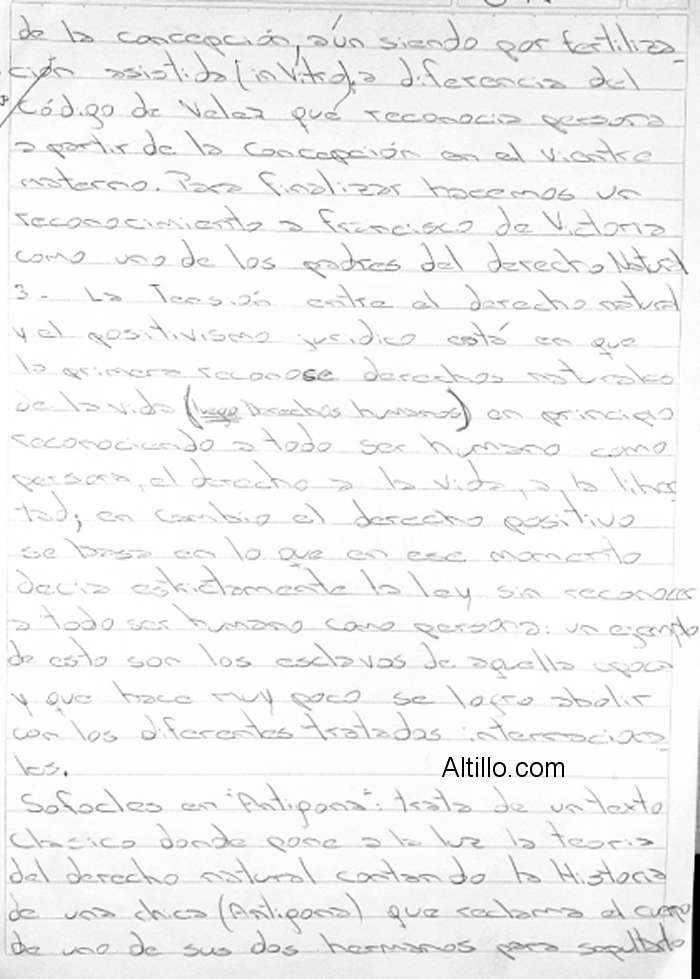 de la concepción, aún siendo por fertiliza-
ción asistida (in Vitro), a diferencia del
Código de Velez que reconocia persona
a partir de la concepción en el vientre
materno. Para finalizar hacemos un
reconocimiento a Francisco de Victoria
como uno de los padres del derecho Natural
3 - La Tensión entre el derecho natural
y el positivismo juridico está en que
la primera reconose derechos naturales
de la vida (luego Derechos humanos) en principio
reconociendo a todo ser humano como
persona, el derecho a la vida, a la liber
tad; en cambio el derecho positivo
se basa en lo que en ese momento
decia estrictamente la ley sin reconocer
a todo ser humano como persona: un ejemplo
de esto son los esclavos de aquella epoca
y que hace muy poco se logro abolir
con los diferentes tratados internacio
les.
Altillo.com
Sofocles en "Antigona": trata de un texto
Clasico donde pone a la luz la teoria
del derecho natural contando la Historia
de una chica (Antigona) que reclama el cuerpo
de uno de sus dos hermanos para sepultarlo